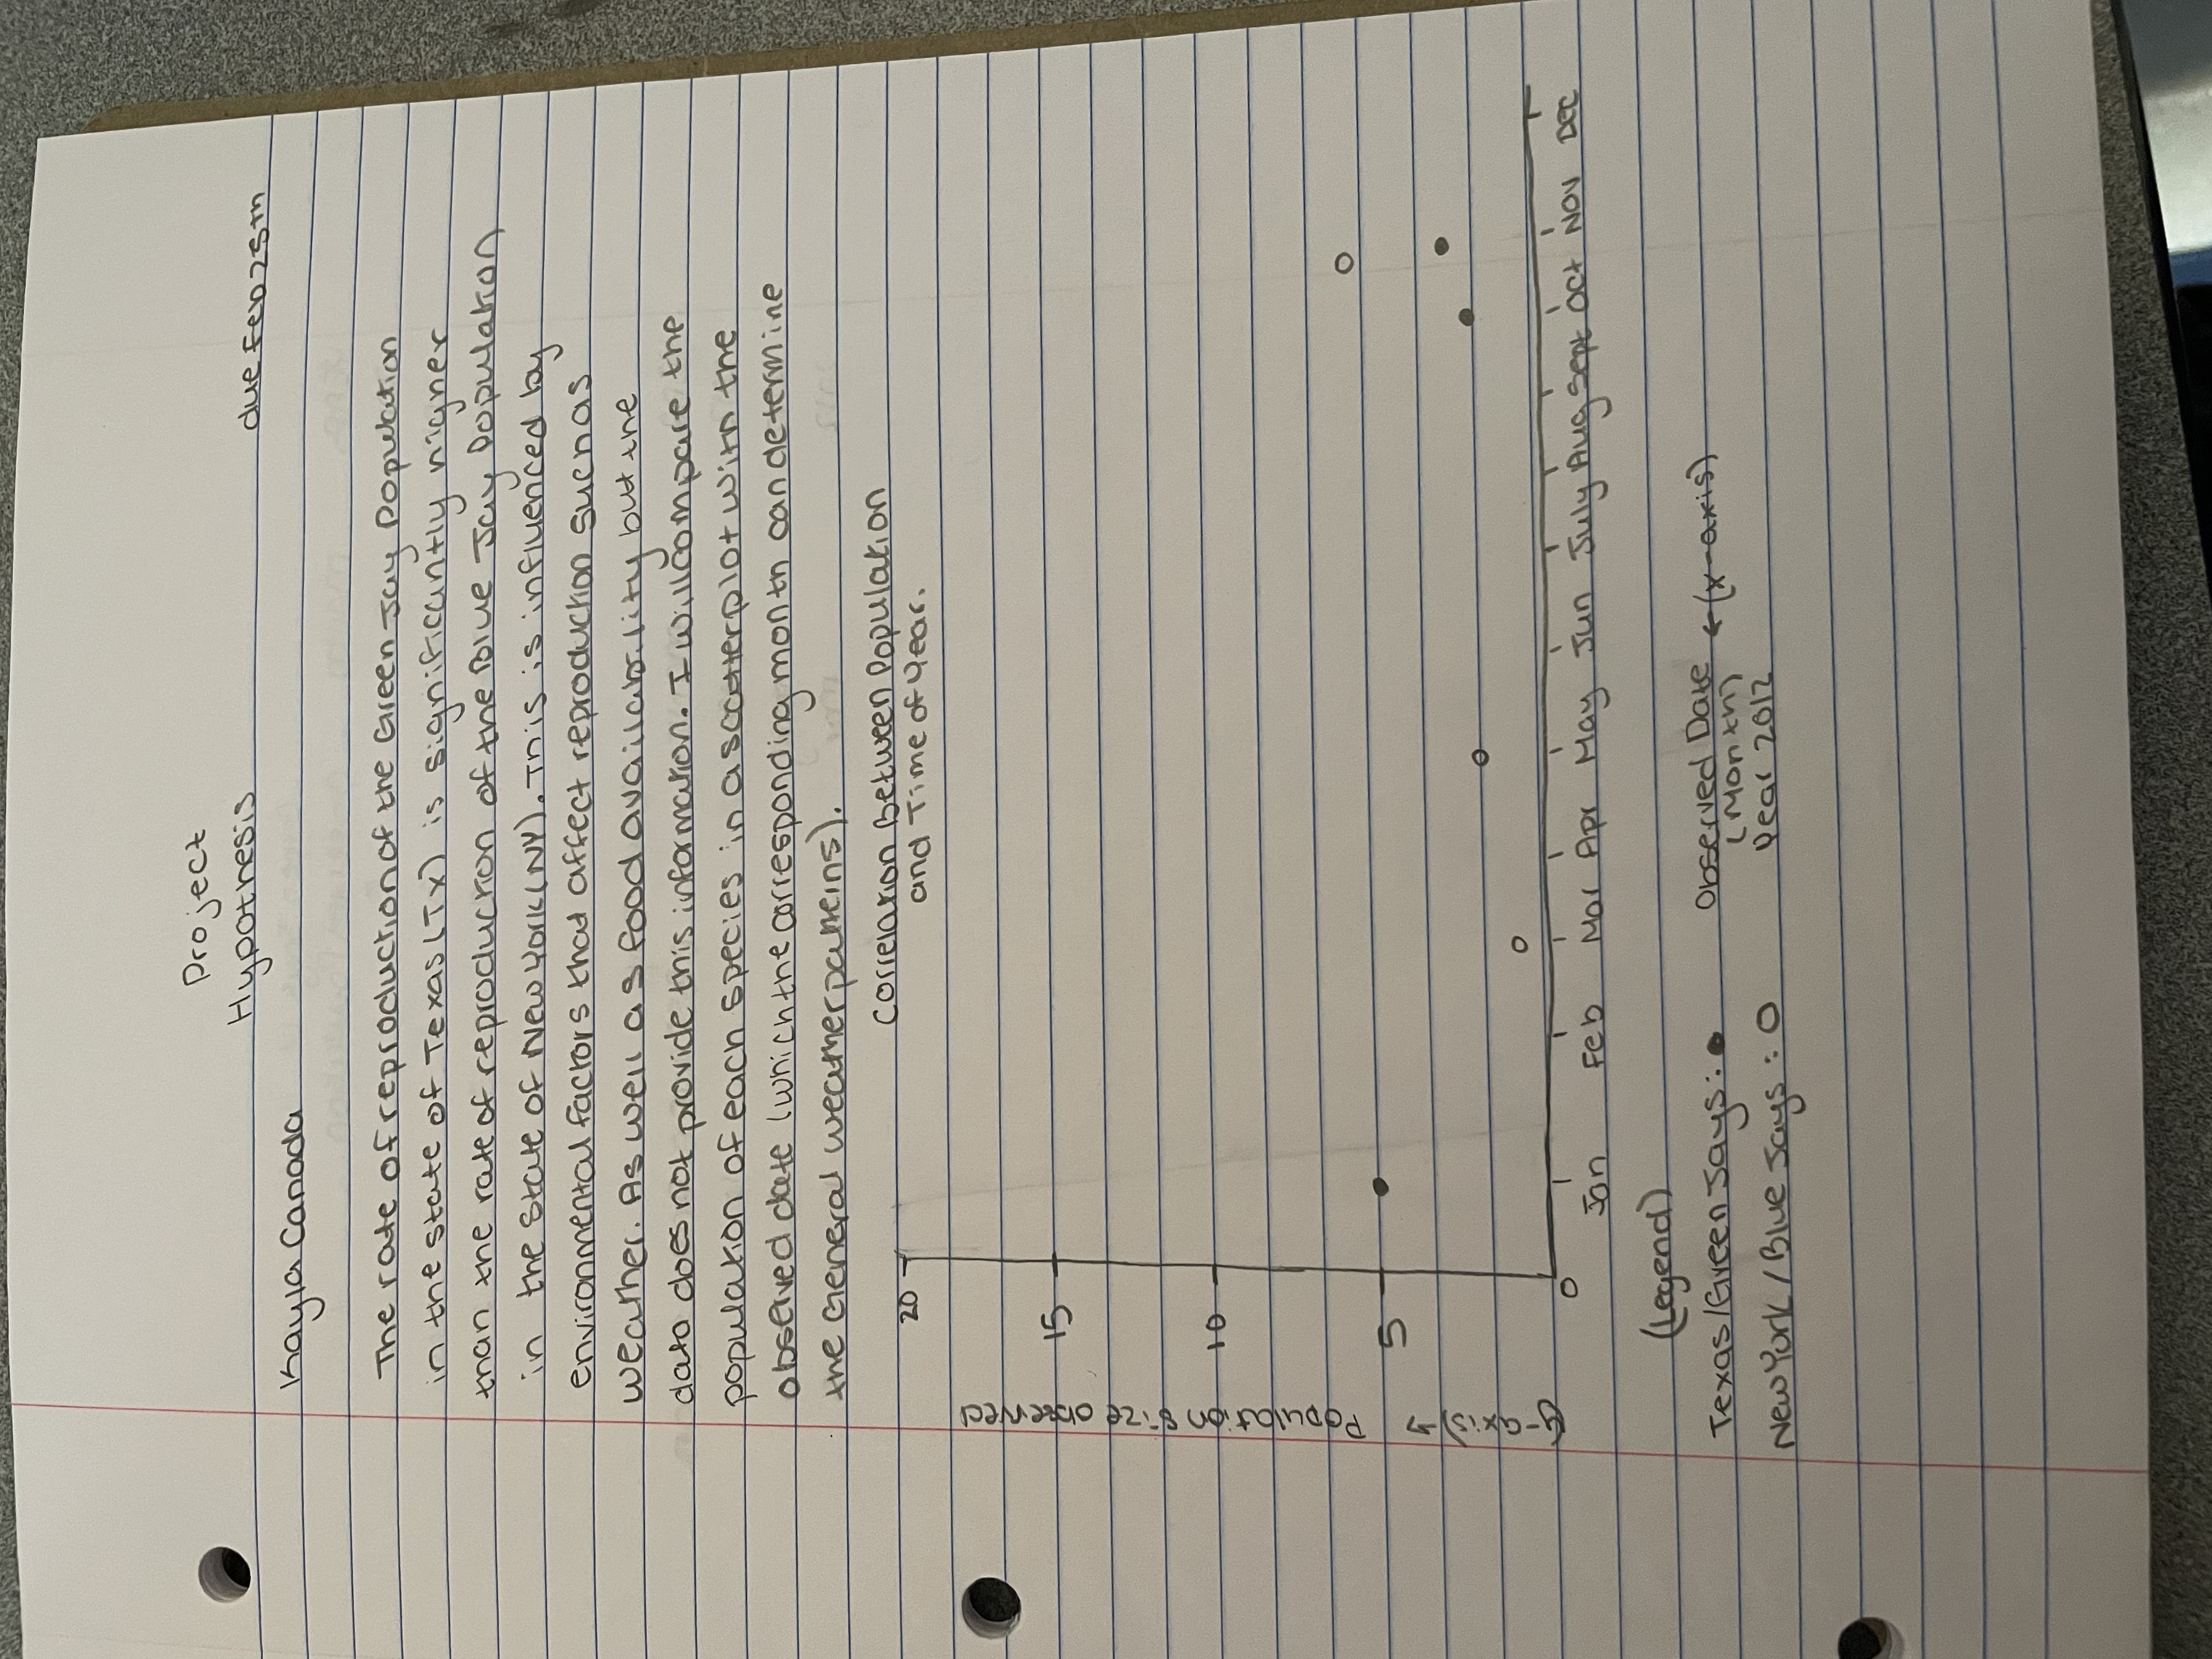 Project
Hypothesis
due Feb 25th
Kayla Canada
The rate of reproduction of the Green Jay Population
in the state of Texas (TX) is significantly higher
than the rate of reproduction of the Blue Jay Population
in the state of New York (NY). This is influenced by
environmental factors that affect reproduction such as
weather. As well as food availability but the
data does not provide this information. I will compare the
population of each species in a scatterplot with the
observed date (which the corresponding month can determine
the General weather patterns).
Correlation Between Population
and Time of Year.
(y-axis) → Population size observed
20
15
10
5
0
Jan Feb Mar Apr May Jun July Aug Sept Oct Nov Dec
(Legend)
Texas/Green Jays: ●
New York / Blue Jays : O
Observed Date ← (x-axis)
(Month)
Year 2012